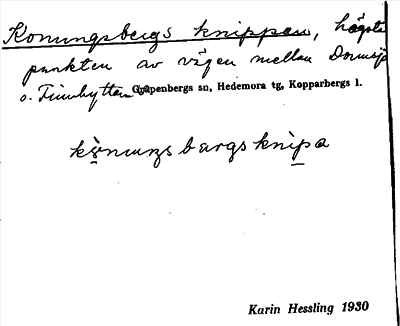 Konungsbergs knippan, högsta
punkten av vägen mellan Dormsjö
o. Finnhyttan Garpenbergs sn, Hedemora tg, Kopparbergs l.
kö̀nuŋsbærgsknipa
Karin Hessling 1930